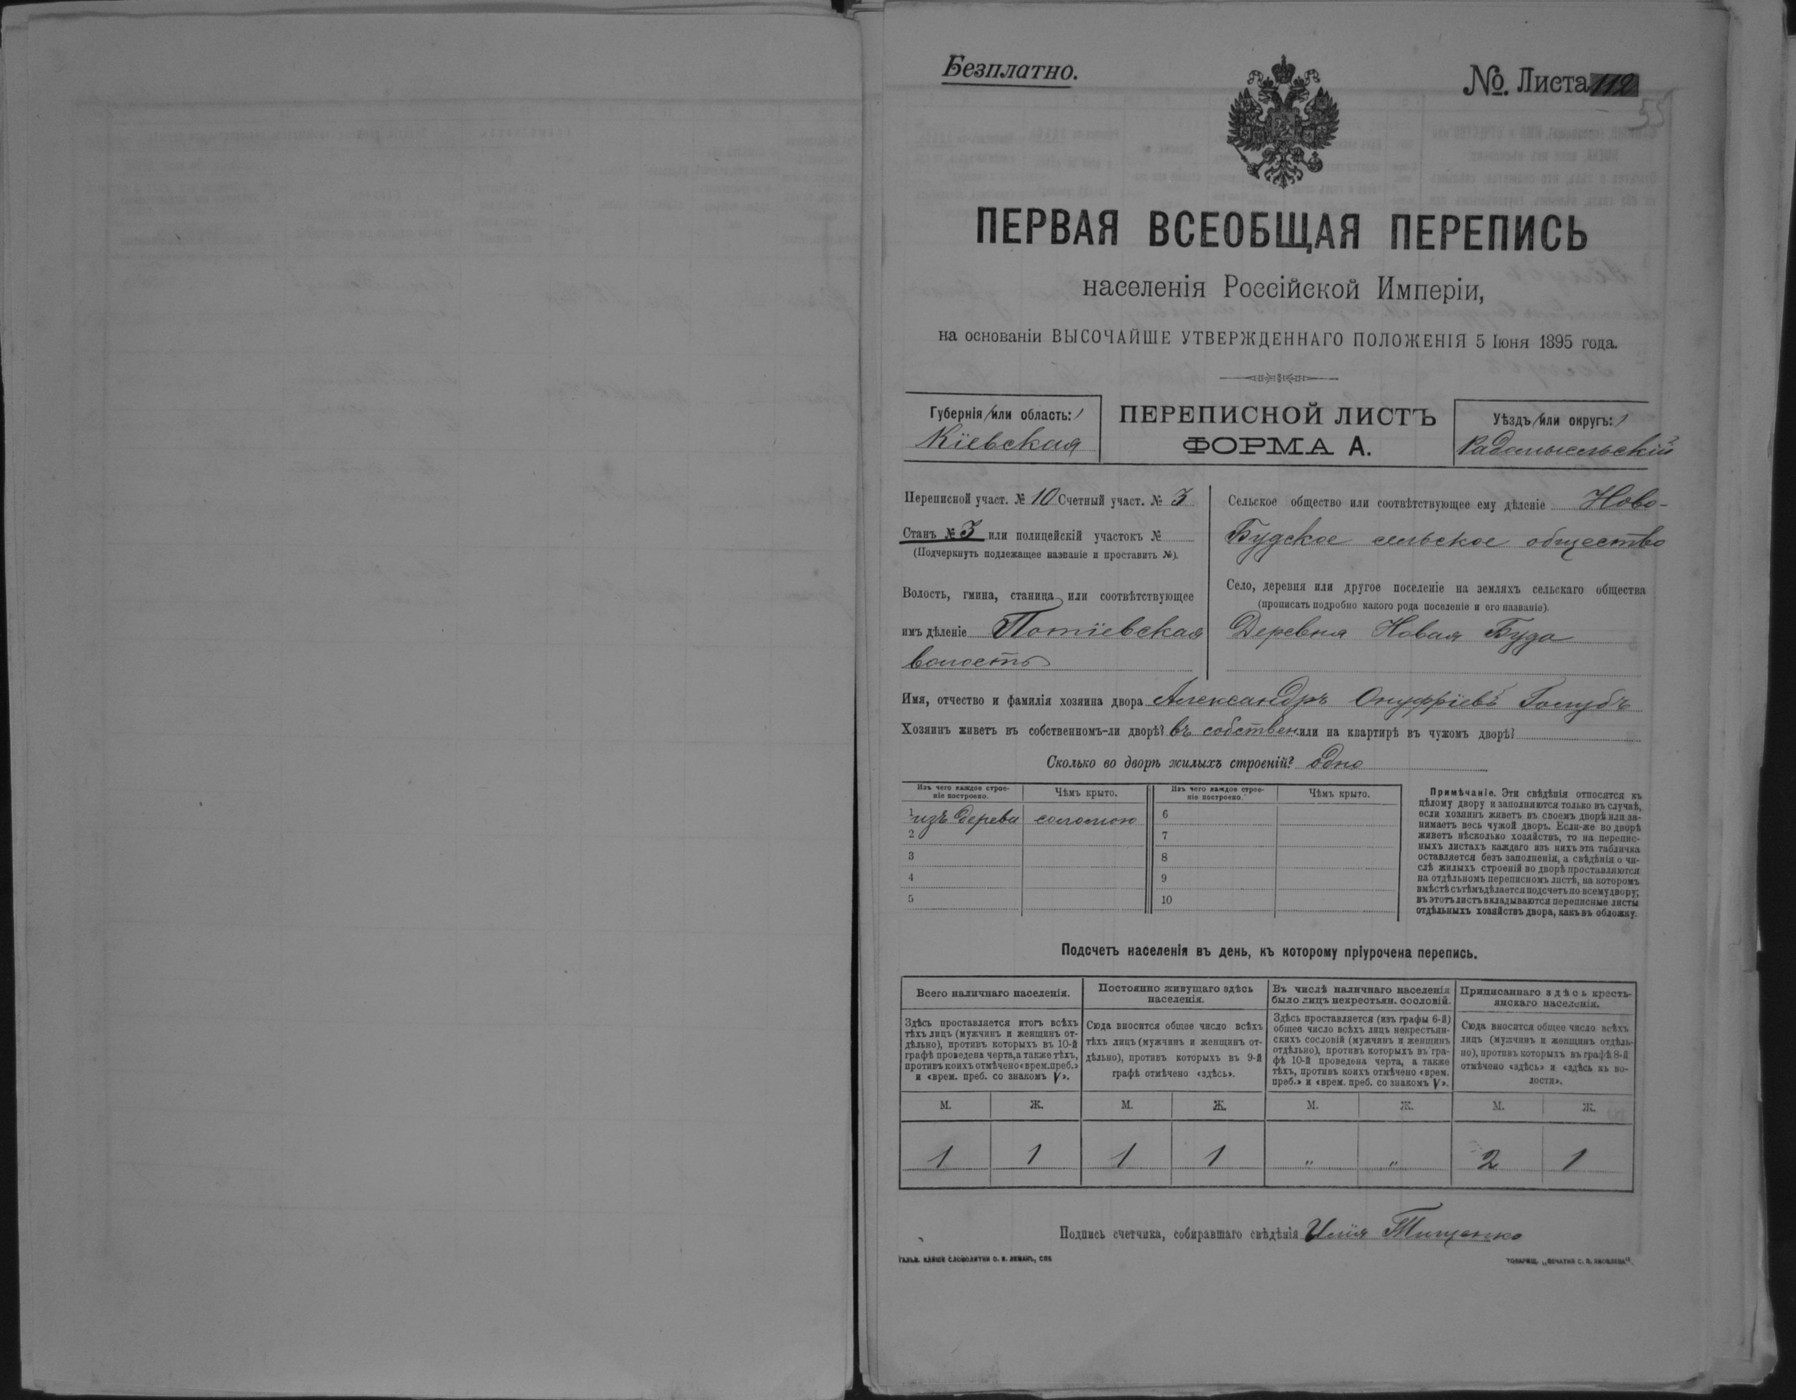 Безплатно.
№. Листа 112
55
ПЕРВАЯ ВСЕОБЩАЯ ПЕРЕПИСЬ
населенія Россійской Имперіи,
на основаніи ВЫСОЧАЙШЕ УТВЕРЖДЕННАГО ПОЛОЖЕНІЯ 5 Іюня 1895 года.
Губернія (или область:)
Кіевская
ПЕРЕПИСНОЙ ЛИСТЪ
ФОРМА А.
Уѣздъ (или округъ:)
Радомысльскій
Переписной участ. № 10 Счетный участ. № 3
Станъ № 3 или полицейскій участокъ №
(Подчеркнуть подлежащее названіе и проставить №).
Волость, гмина, станица или соотвѣтствующее
имъ дѣленіе Потіевская
волость
Сельское общество или соотвѣтствующее ему дѣленіе Ново-
Будское сельское общество
Село, деревня или другое поселеніе на земляхъ сельскаго общества
(прописать подробно какого рода поселеніе и его названіе).
Деревня Новая Буда
Имя, отчество и фамилія хозяина двора Александръ Онуфріевъ Голубъ
Хозяинъ живетъ въ собственномъ-ли дворѣ? въ собствен. или на квартирѣ въ чужомъ дворѣ?
Сколько во дворѣ жилыхъ строеній? одно
Изъ чего каждое строе-
ніе построено.
Чѣмъ крыто.
Изъ чего каждое строе-
ніе построено.
Чѣмъ крыто.
1 изъ дерева соломою
2
3
4
5
6
7
8
9
10
Примѣчаніе. Эти свѣдѣнія относятся къ
цѣлому двору и заполняются только въ случаѣ,
если хозяинъ живетъ въ своемъ дворѣ или за-
нимаетъ весь чужой дворъ. Если-же во дворѣ
живетъ нѣсколько хозяйствъ, то на перепис-
ныхъ листахъ каждаго изъ нихъ эта табличка
оставляется безъ заполненія, а свѣдѣнія о чи-
слѣ жилыхъ строеній во дворѣ проставляются
на отдѣльномъ переписномъ листѣ, на которомъ
вмѣстѣ съ тѣмъ дѣлается подсчетъ по всему двору;
въ этотъ листъ вкладываются переписные листы
отдѣльныхъ хозяйствъ двора, какъ въ обложку.
Подсчетъ населенія въ день, къ которому пріурочена перепись.
Всего наличнаго населенія.
Здѣсь проставляется итогъ всѣхъ
тѣхъ лицъ (мужчинъ и женщинъ от-
дѣльно), противъ которыхъ въ 10-й
графѣ проведена черта, а также тѣхъ,
противъ коихъ отмѣчено «врем. преб.»
и «врем. преб. со знакомъ V».
Постоянно живущаго здѣсь
населенія.
Сюда вносится общее число всѣхъ
тѣхъ лицъ (мужчинъ и женщинъ от-
дѣльно), противъ которыхъ въ 9-й
графѣ отмѣчено «здѣсь».
Въ числѣ наличнаго населенія
было лицъ некрестьян. сословій.
Здѣсь проставляется (изъ графы 6-й)
общее число всѣхъ лицъ некрестьян-
скихъ сословій (мужчинъ и женщинъ
отдѣльно), противъ которыхъ въ гра-
фѣ 10-й проведена черта, а также
тѣхъ, противъ коихъ отмѣчено «врем.
преб.» и «врем. преб. со знакомъ V».
Приписаннаго здѣсь кресть-
янскаго населенія.
Сюда вносится общее число всѣхъ
лицъ (мужчинъ и женщинъ отдѣль-
но), противъ которыхъ въ графѣ 8-й
отмѣчено «здѣсь» и «здѣсь къ во-
лости».
М. Ж. М. Ж. М. Ж. М. Ж.
1 1 1 1 „ „ 2 1
Подпись счетчика, собиравшаго свѣдѣнія Илія Тищенко
ГАЛЬВ. КЛИШЕ СЛОВОЛИТНИ О. И. ЛЕМАНЪ, СПБ.
ТОВАРИЩ. „ПЕЧАТНЯ С. П. ЯКОВЛЕВА".